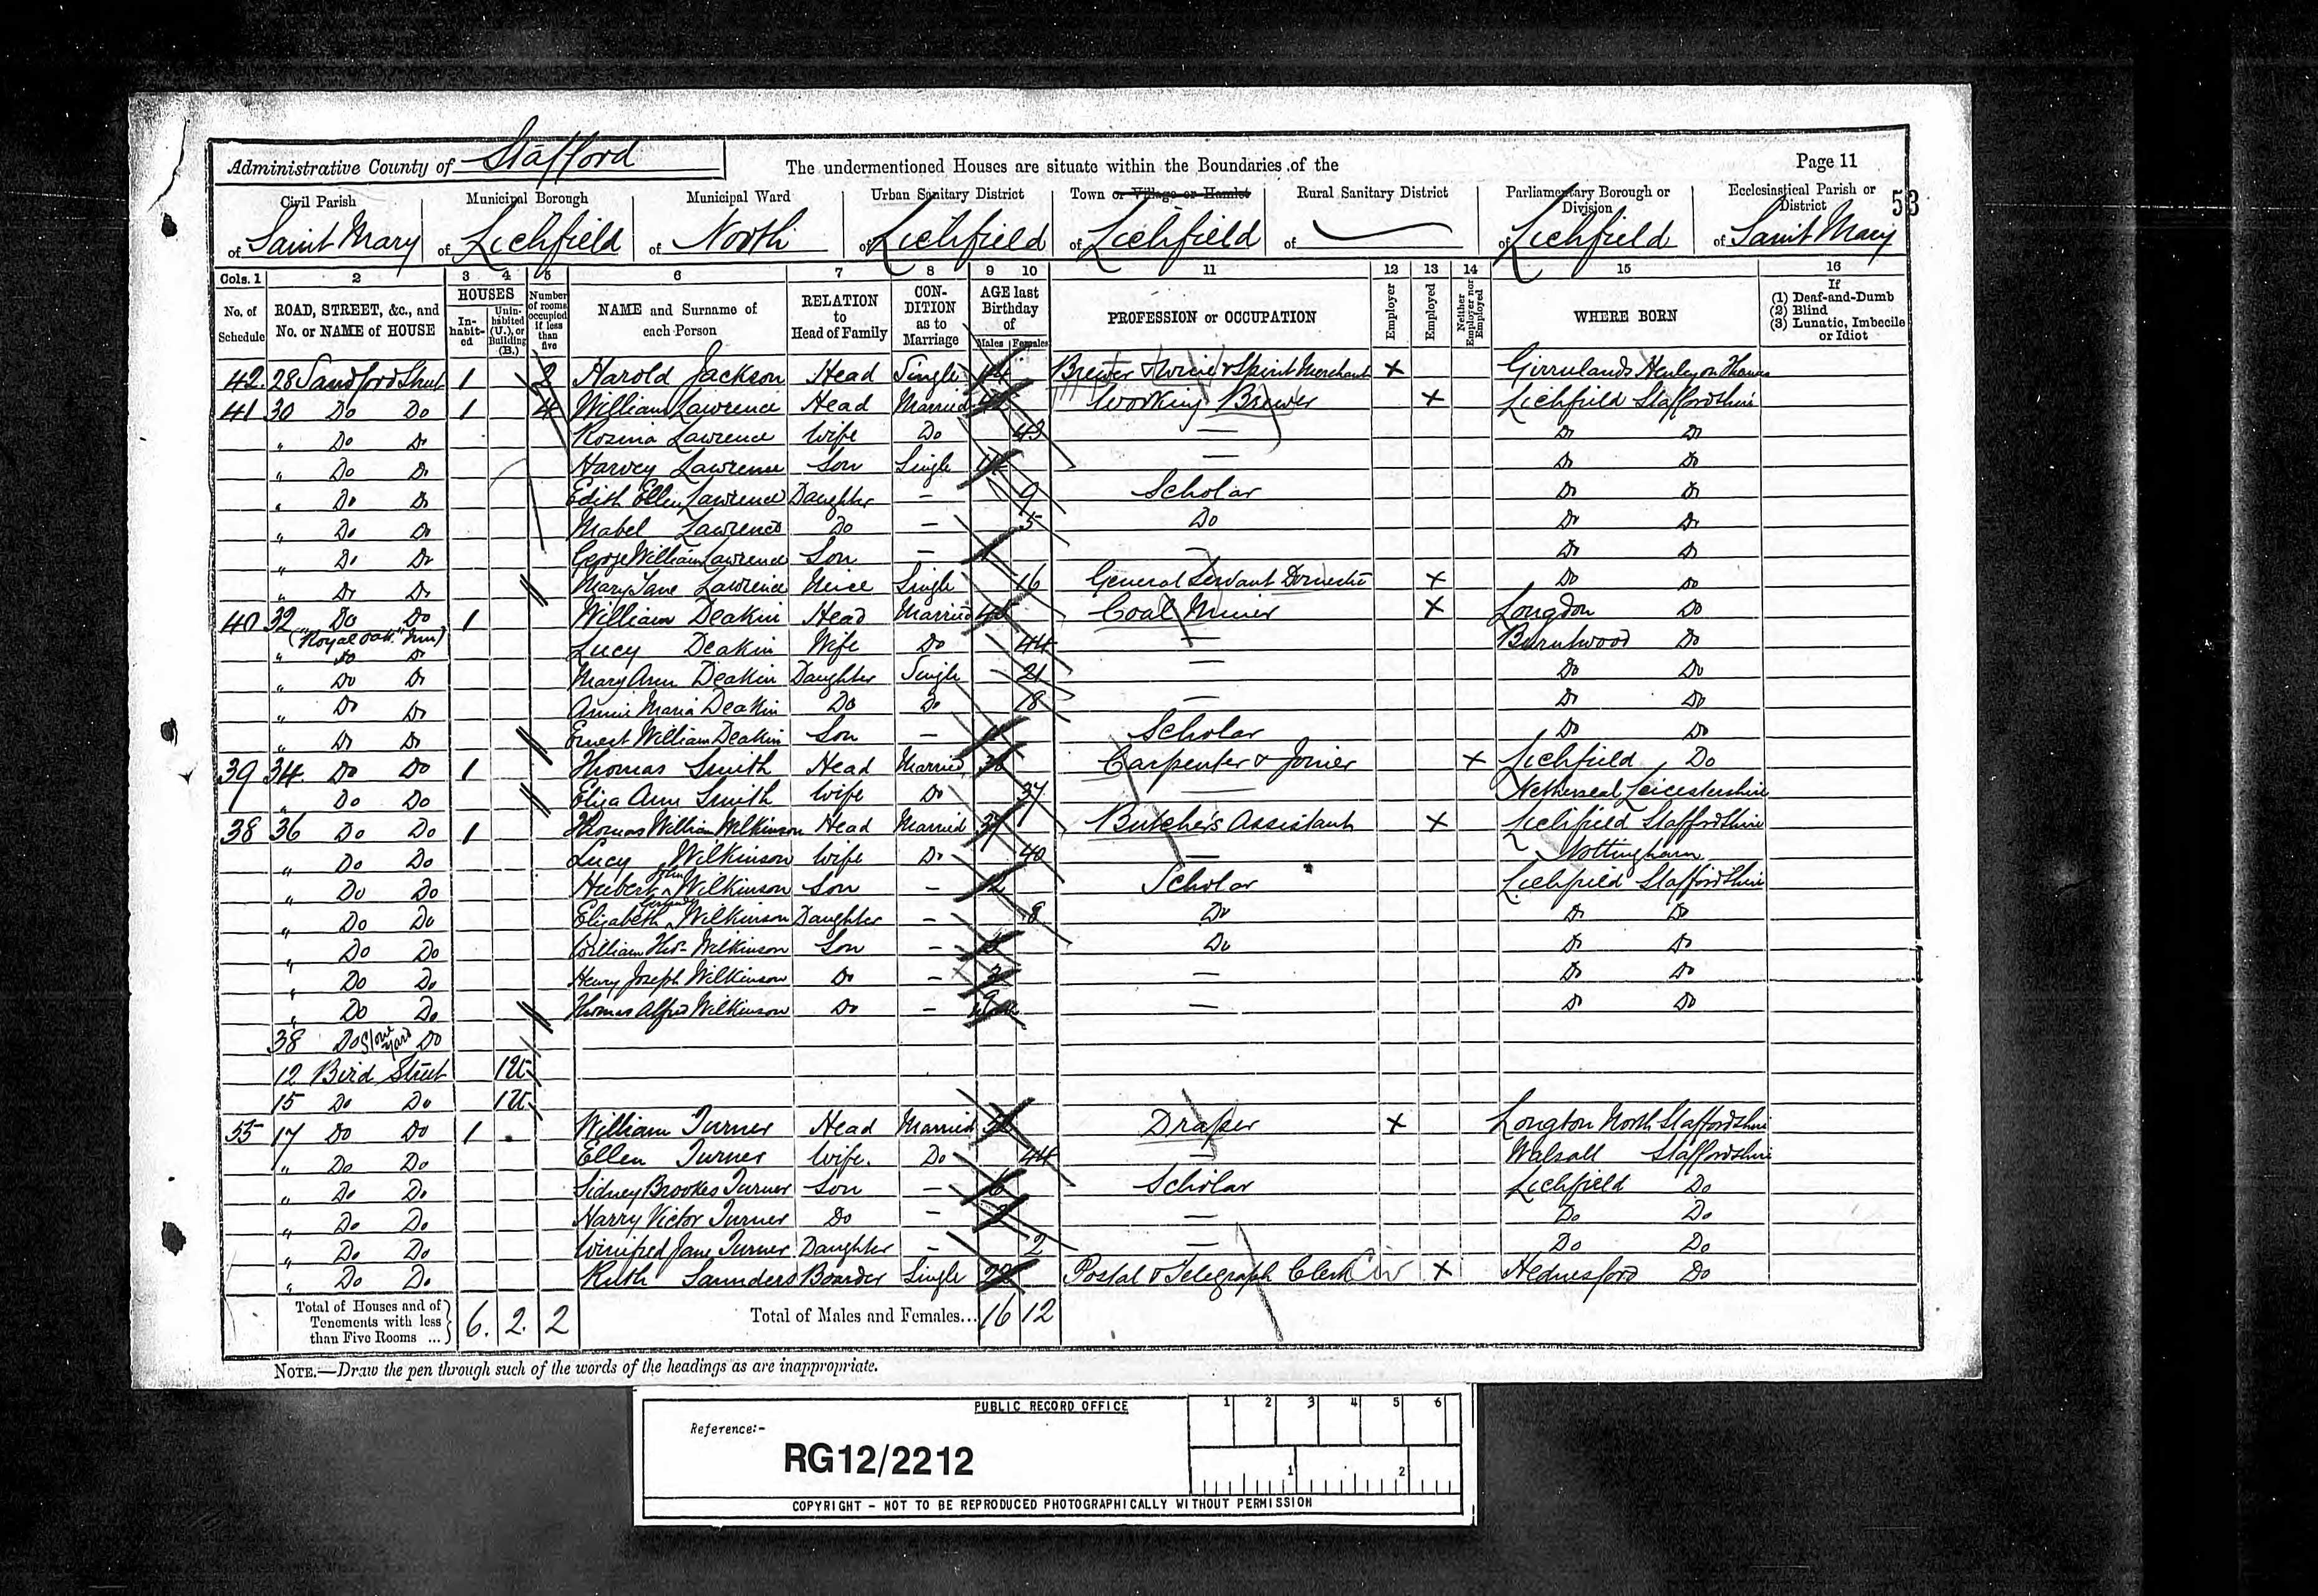 Administrative County of Stafford
The undermentioned Houses are situate within the Boundaries of the
Page 11
53
Civil Parish of Saint Mary
Municipal Borough of Lichfield
Municipal Ward of North
Urban Sanitary District of Lichfield
Town or Village or Hamlet of Lichfield
Rural Sanitary District of
Parliamentary Borough or Division of Lichfield
Ecclesiastical Parish or District of Saint Mary
Cols. 1 2 3 4 5 6 7 8 9 10 11 12 13 14 15 16
No. of Schedule
ROAD, STREET, &c., and No. or NAME of HOUSE
HOUSES
In-habit-ed
Unin-habited (U.), or Building (B.)
Number of rooms occupied if less than five
NAME and Surname of each Person
RELATION to Head of Family
CON-DITION as to Marriage
AGE last Birthday of
Males Females
PROFESSION or OCCUPATION
Employer
Employed
Neither Employer nor Employed
WHERE BORN
If (1) Deaf-and-Dumb (2) Blind (3) Lunatic, Imbecile or Idiot
42. 28 Sandford Street 1 2 Harold Jackson Head Single Brewer & Wine & Spirit Merchant X Henley on Thames
41 30 Do Do 1 4 William Lawrence Head Married Working Brewer X Lichfield Staffordshire
" Do Do Rosina Lawrence Wife Do 43 — Do Do
" Do Do Harvey Lawrence Son Single — Do Do
" Do Do Edith Ellen Lawrence Daughter — 9 Scholar Do Do
" Do Do Mabel Lawrence Do — 5 Do Do Do
" Do Do George William Lawrence Son — — Do Do
" Do Do Mary Jane Lawrence Neice Single 16 General Servant Domestic X Do Do
40 32 Do Do 1 William Deakin Head Married Coal Miner X Longdon Do
("Royal Oak" Inn)
" Do Do Lucy Deakin Wife Do 44 — Burntwood Do
" Do Do Mary Ann Deakin Daughter Single 21 — Do Do
" Do Do Annie Maria Deakin Do Do 18 — Do Do
" Do Do Ernest William Deakin Son — Scholar Do Do
39 34 Do Do 1 Thomas Smith Head Married Carpenter & Joiner X Lichfield Do
" Do Do Eliza Ann Smith Wife Do 37 — Netherseal Leicestershire
38 36 Do Do 1 Thomas William Wilkinson Head Married 37 Butcher's Assistant X Lichfield Staffordshire
" Do Do Lucy Wilkinson Wife Do 40 — Nottingham
" Do Do Herbert John Wilkinson Son — 12 Scholar Lichfield Staffordshire
" Do Do Elizabeth Wilkinson Daughter — 8 Do Do Do
" Do Do William Thos. Wilkinson Son — Do Do Do
" Do Do Henry Joseph Wilkinson Do — — Do Do
" Do Do Thomas Alfred Wilkinson Do — — Do Do
38 Do Store Yard Do
12 Bird Street 1U
15 Do Do 1U
55 17 Do Do 1 William Turner Head Married Draper X Longton North Staffordshire
" Do Do Ellen Turner Wife. Do 44 — Walsall Staffordshire
" Do Do Sidney Brookes Turner Son — 6 Scholar Lichfield Do
" Do Do Harry Victor Turner Do — — Do Do
" Do Do Winifred Jane Turner Daughter — 2 — Do Do
" Do Do Ruth Saunders Boarder Single Postal & Telegraph Clerk X Hednesford Do
Total of Houses and of Tenements with less than Five Rooms ... 6. 2. 2
Total of Males and Females... 16 12
NOTE.—Draw the pen through such of the words of the headings as are inappropriate.
PUBLIC RECORD OFFICE
Reference:-
RG12/2212
1 2 3 4 5 6
1 2
COPYRIGHT - NOT TO BE REPRODUCED PHOTOGRAPHICALLY WITHOUT PERMISSION